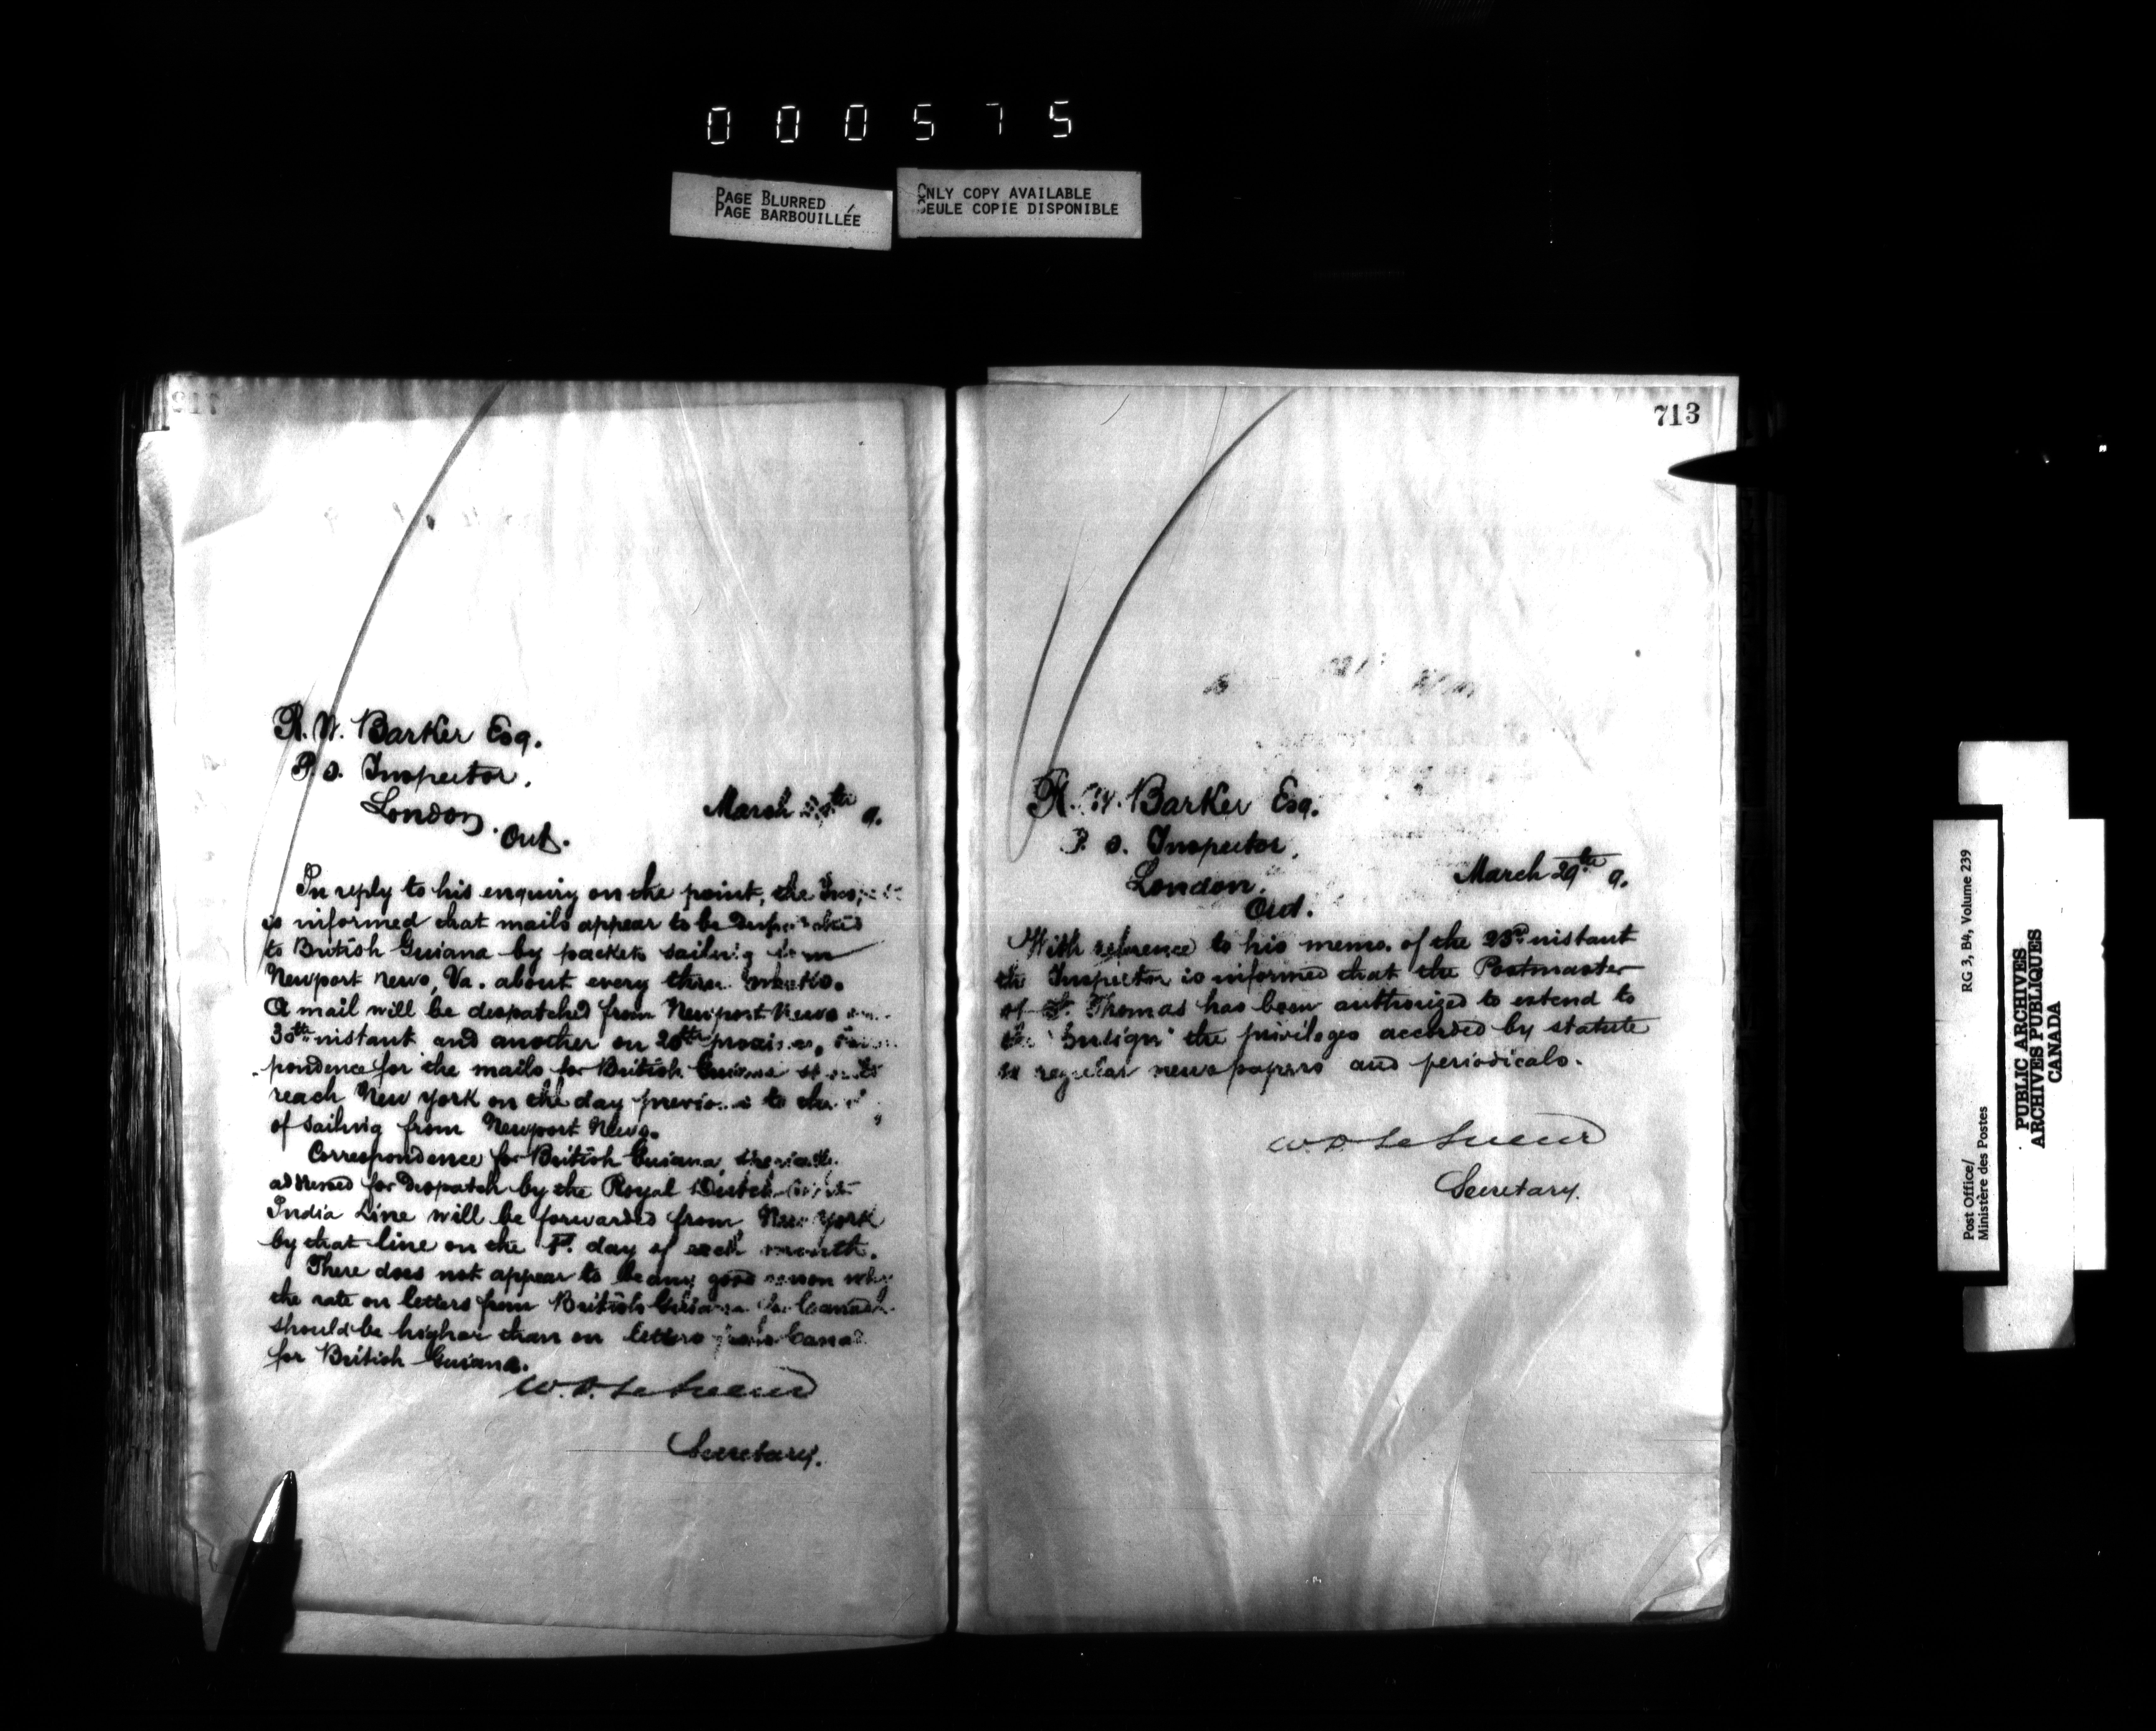 000575
PAGE BLURRED
PAGE BARBOUILLÉE
ONLY COPY AVAILABLE
SEULE COPIE DISPONIBLE
R. W. Barker Esq.
P. O. Inspector,
London, Ont.
March 9.
In reply to his enquiry on the point, the
is informed that mails appear to be despatched
to British Guiana by packets sailing from
Newport News, Va. about every three weeks.
A mail will be despatched from Newport News on
30th instant and another on 20th proximo,
pondence for the mails for British Guiana should
reach New York on the day previous to the
of sailing from Newport News.
Correspondence for British Guiana, specially
addressed for despatch by the Royal Dutch West
India Line will be forwarded from New York
by that line on the 1st. day of each month.
There does not appear to be any good reason why
the rate on letters from British Guiana for Canada
should be higher than on letters from Canada
for British Guiana.
W. D. LeSueur
Secretary.
713
R. W. Barker Esq.
P. O. Inspector,
London,
Ont.
March 29th 9.
With reference to his memo. of the 23rd instant
the Inspector is informed that the Postmaster
of St. Thomas has been authorized to extend to
the "Ensign" the privileges accorded by statute
to regular newspapers and periodicals.
W. D. LeSueur
Secretary.
Post Office/
Ministère des Postes
RG 3, B4, Volume 239
PUBLIC ARCHIVES
ARCHIVES PUBLIQUES
CANADA